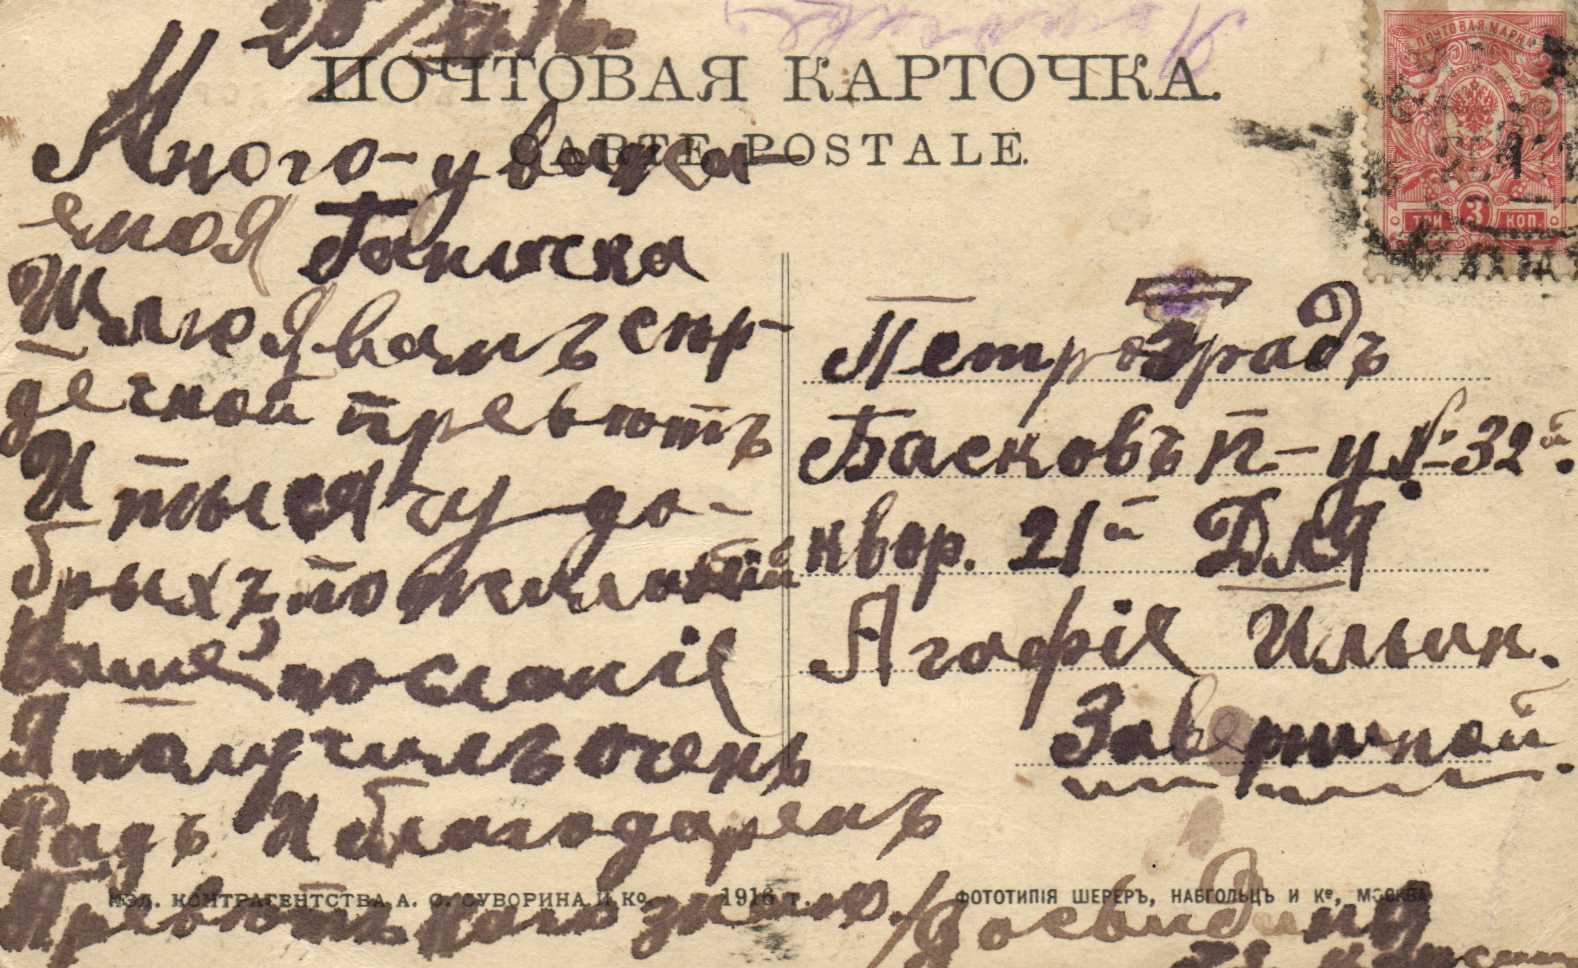 ПОЧТОВАЯ КАРТОЧКА.
CARTE POSTALE.
ПОЧТОВАЯ МАРКА
ТРИ 3 КОП.
Много-уважа-
емоя
Шлю Я вамъ сер-
дечной превютъ
И тысячу до-
брыхъ пожеланій
Ваше посланія
Я получилъ очень
Радъ И благодаренъ
Превютъ кого знаю.
Досвиданя
Петроградъ
Басковъ п-у № 32й.
квор. 21й Для
Агафія Ильин.
Завершной.
ИЗД. КОНТРАГЕНТСТВА А. С. СУВОРИНА И Ко. 1916 г.
ФОТОТИПІЯ ШЕРЕРЪ, НАБГОЛЬЦЪ И Ко, МОСКВА